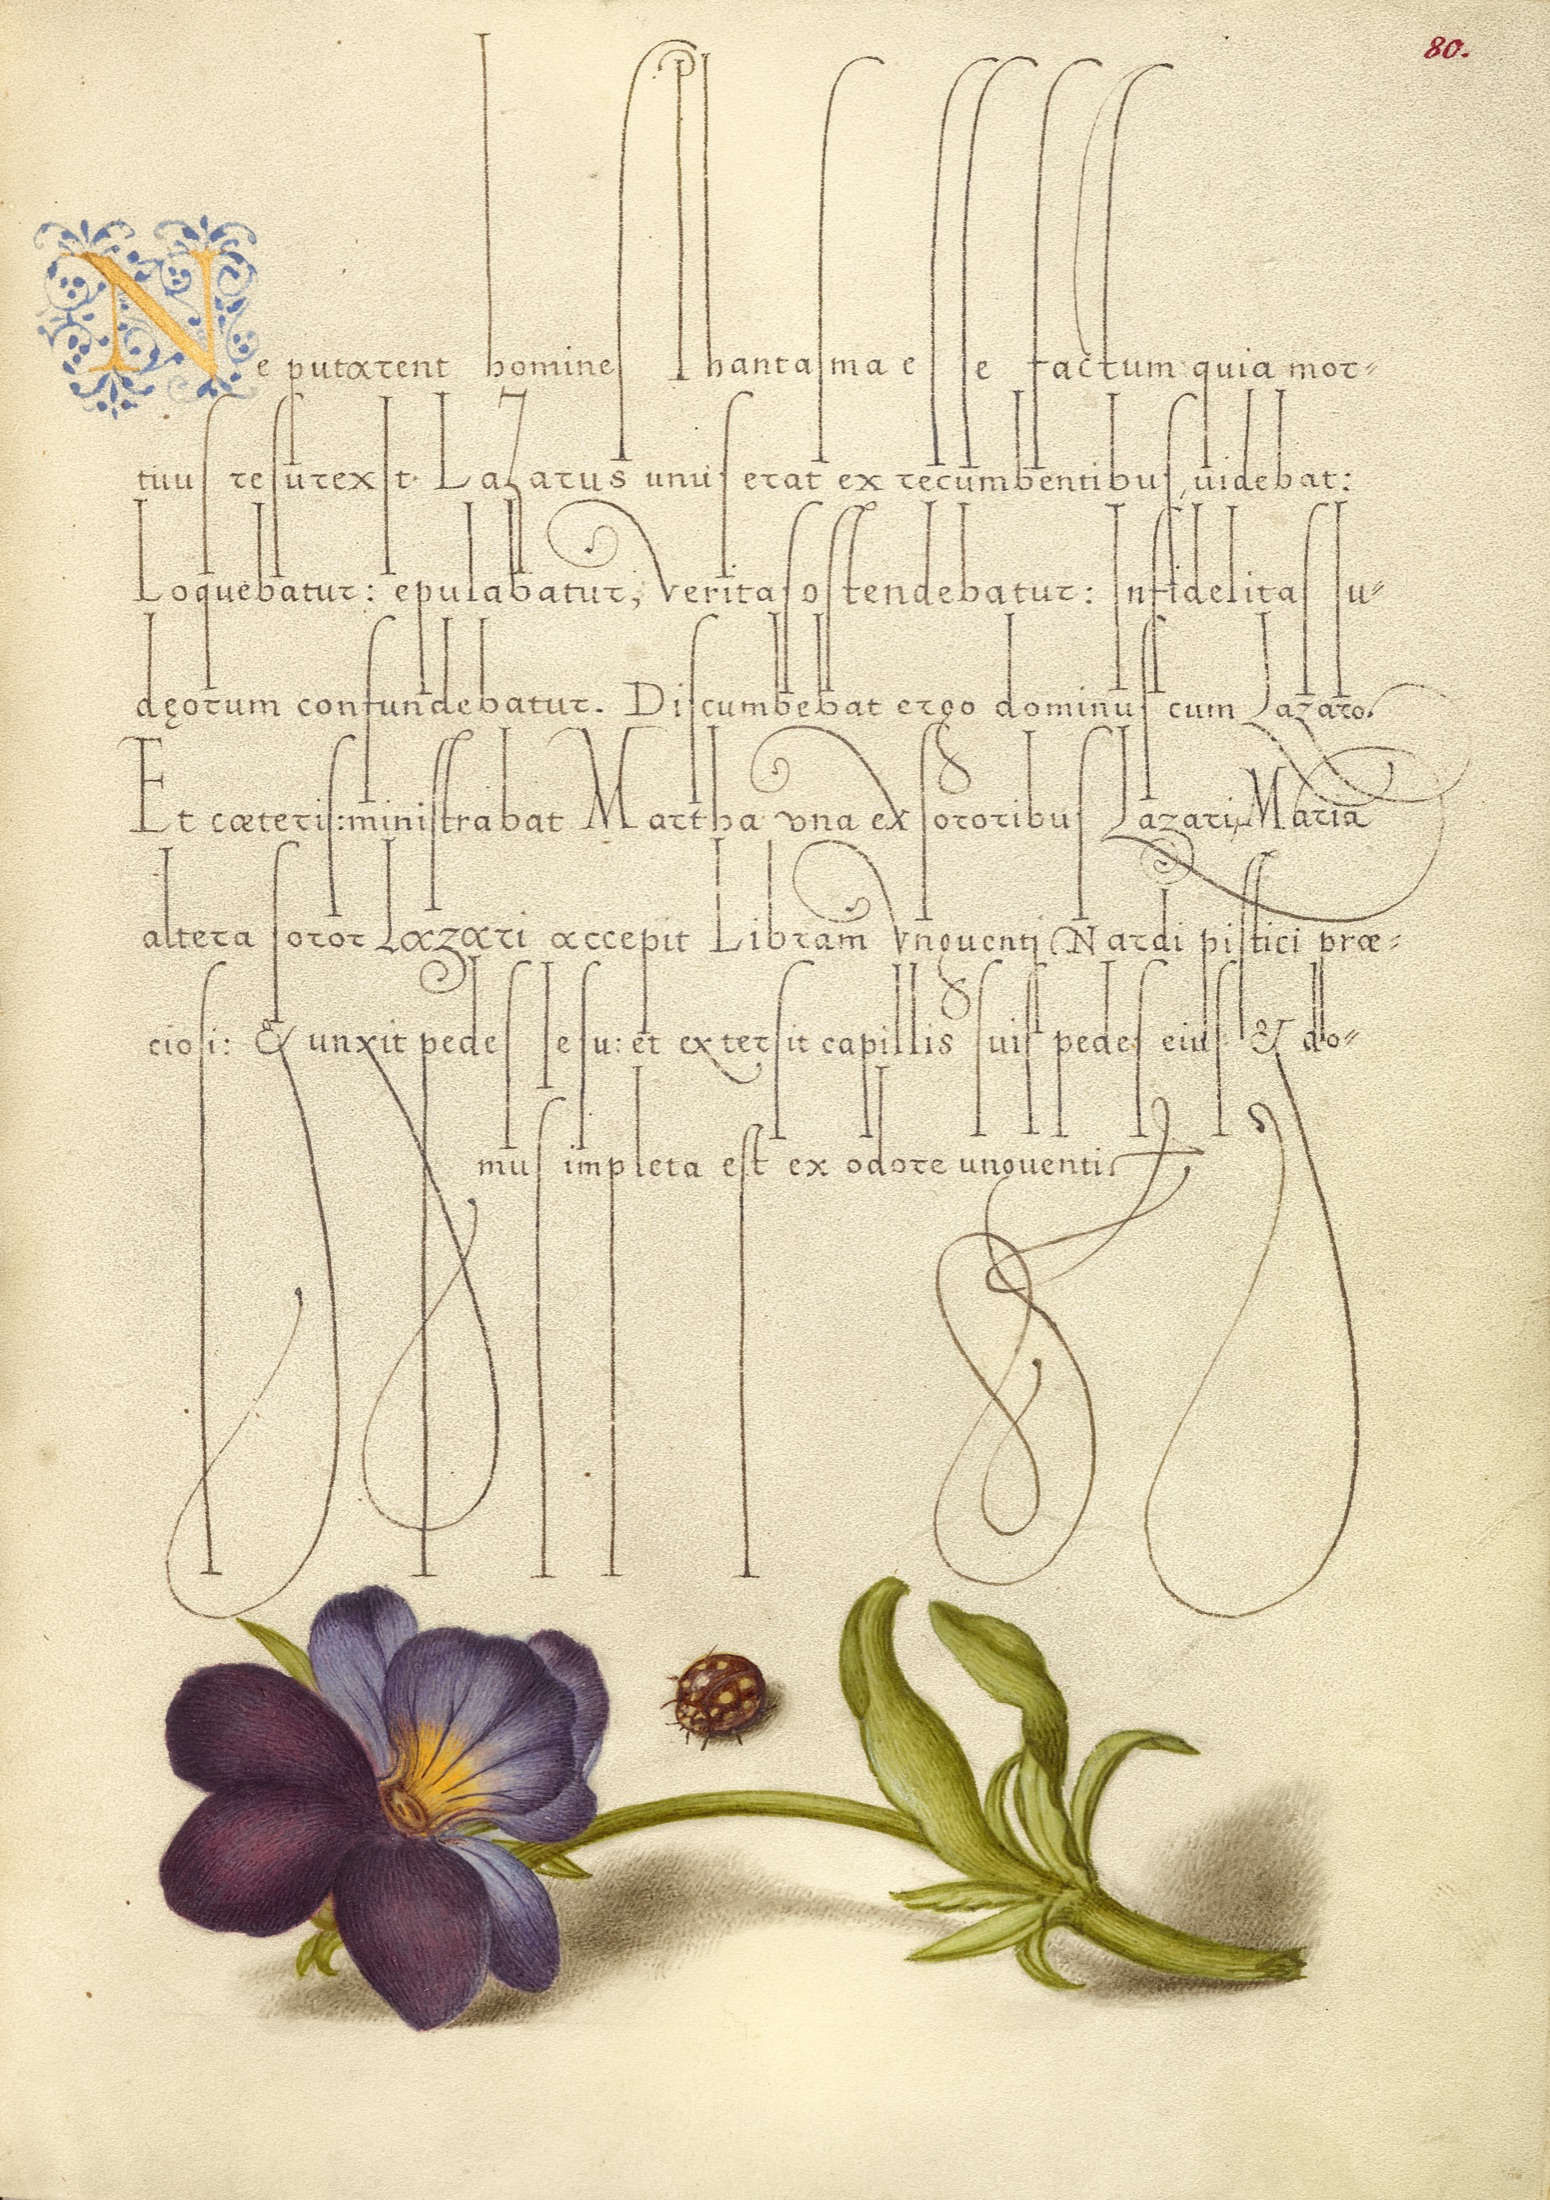 80.
Ne putarent homines Phantasma esse factum quia mor=
tuus resurexit. Lazarus unus erat ex recumbentibus, uidebat:
Loquebatur: epulabatur; Veritas ostendebatur: Infidelitas Iu=
dęorum confundebatur. Discumbebat ergo dominus cum Lazaro.
Et cœteris: ministrabat Martha una ex sororibus Lazari, Maria
altera soror Lazari accepit Libram Vnguenti Nardi pistici præ=
ciosi: & unxit pedes Iesu: et extersit capillis suis pedes eius: & do=
mus impleta est ex odore unguenti.